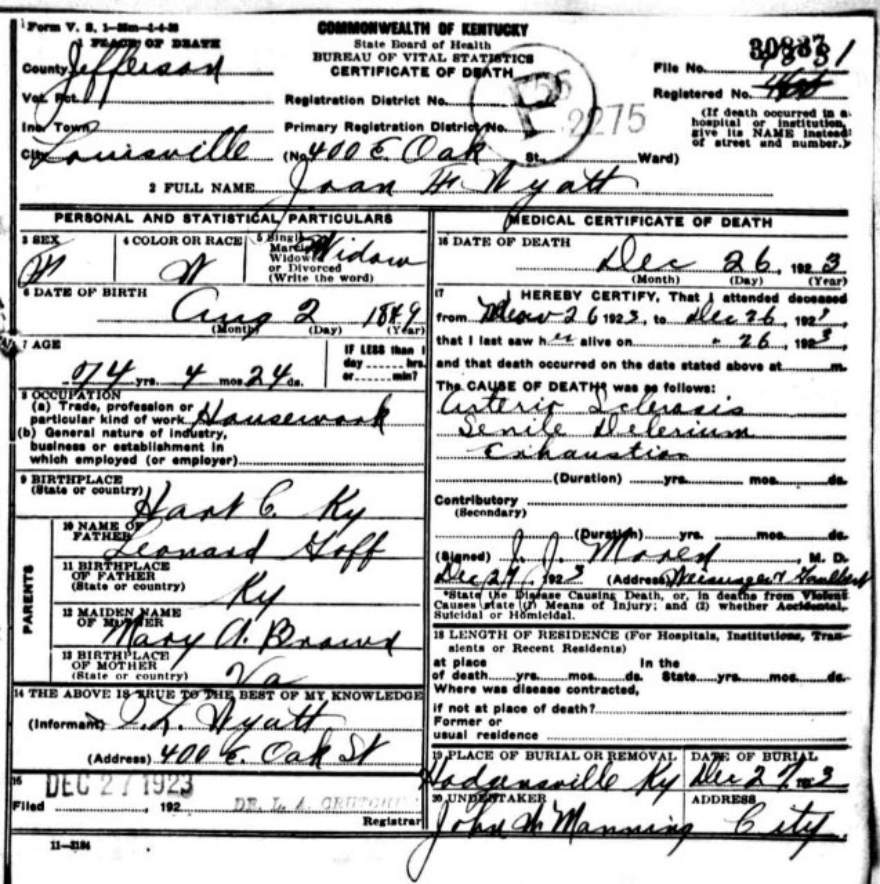 Form V. S. 1-
COMMONWEALTH OF KENTUCKY
State Board of Health
BUREAU OF VITAL STATISTICS
CERTIFICATE OF DEATH
1 PLACE OF DEATH
County Jefferson
Vot. Pct.
Inc. Town
City Louisville
Registration District No.
Primary Registration District No. 2275
(No. 400 E. Oak St., Ward)
File No. 30887
Registered No.
(If death occurred in a hospital or institution, give its NAME instead of street and number.)
2 FULL NAME Joan F Wyatt
PERSONAL AND STATISTICAL PARTICULARS
3 SEX F
4 COLOR OR RACE W
5 Single Married Widowed or Divorced (Write the word) Widow
6 DATE OF BIRTH
Aug 2 1849
(Month) (Day) (Year)
7 AGE
74 yrs. 4 mos. 24 ds.
IF LESS than 1 day hrs. or min?
8 OCCUPATION
(a) Trade, profession or particular kind of work Housework
(b) General nature of industry, business or establishment in which employed (or employer)
9 BIRTHPLACE
(State or country) Hart C. Ky
PARENTS
10 NAME OF FATHER Leonard Goff
11 BIRTHPLACE OF FATHER
(State or country) Ky
12 MAIDEN NAME OF MOTHER Mary A. Brown
13 BIRTHPLACE OF MOTHER
(State or country) Va
14 THE ABOVE IS TRUE TO THE BEST OF MY KNOWLEDGE
(Informant) Wyatt
(Address) 400 E. Oak St
15 DEC 27 1923
Filed 192 DR. L. A.
Registrar
11-3184
MEDICAL CERTIFICATE OF DEATH
16 DATE OF DEATH
Dec 26, 1923
(Month) (Day) (Year)
17 I HEREBY CERTIFY, That I attended deceased
from 26 1923, to Dec 26, 192
that I last saw her alive on " 26, 1923,
and that death occurred on the date stated above at m.
The CAUSE OF DEATH* was as follows:
Arterio Sclerosis
Senile Delerium
Exhaustion
(Duration) yrs. mos. ds.
Contributory
(Secondary)
(Duration) yrs. mos. ds.
(Signed) J. J. Moren M. D.
Dec 27, 1923 (Address)
*State the Disease Causing Death, or, in deaths from Violent
Causes state (1) Means of Injury; and (2) whether Accidental,
Suicidal or Homicidal.
18 LENGTH OF RESIDENCE (For Hospitals, Institutions, Transients or Recent Residents)
at place In the
of death yrs. mos. ds. State yrs. mos. ds.
Where was disease contracted,
if not at place of death?
Former or
usual residence
19 PLACE OF BURIAL OR REMOVAL
Hodgensville Ky
DATE OF BURIAL
Dec 27, 1923
20 UNDERTAKER
John Manning
ADDRESS
City